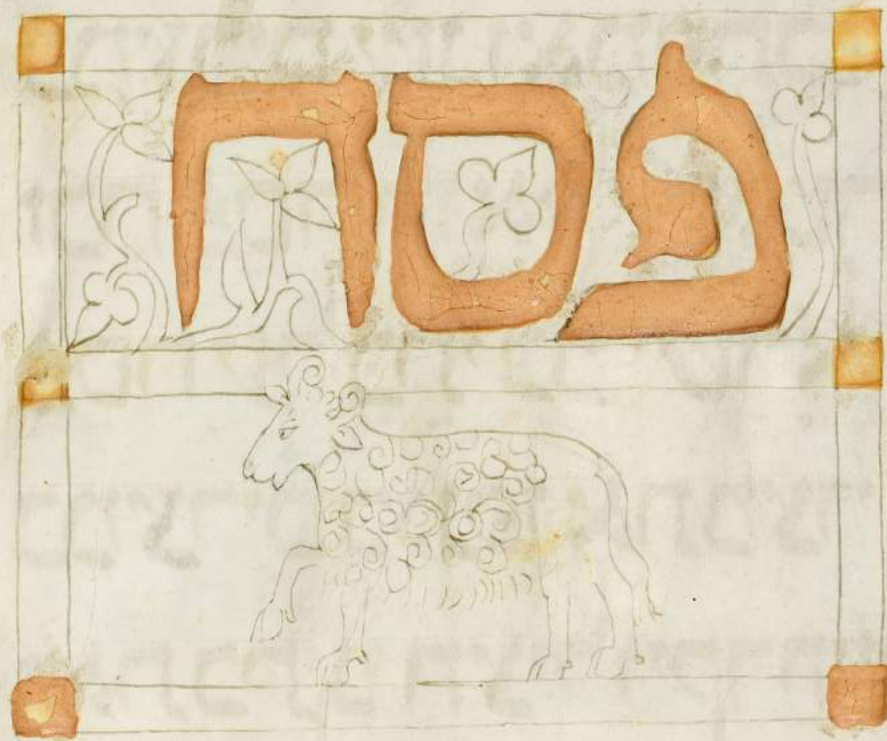 פסח